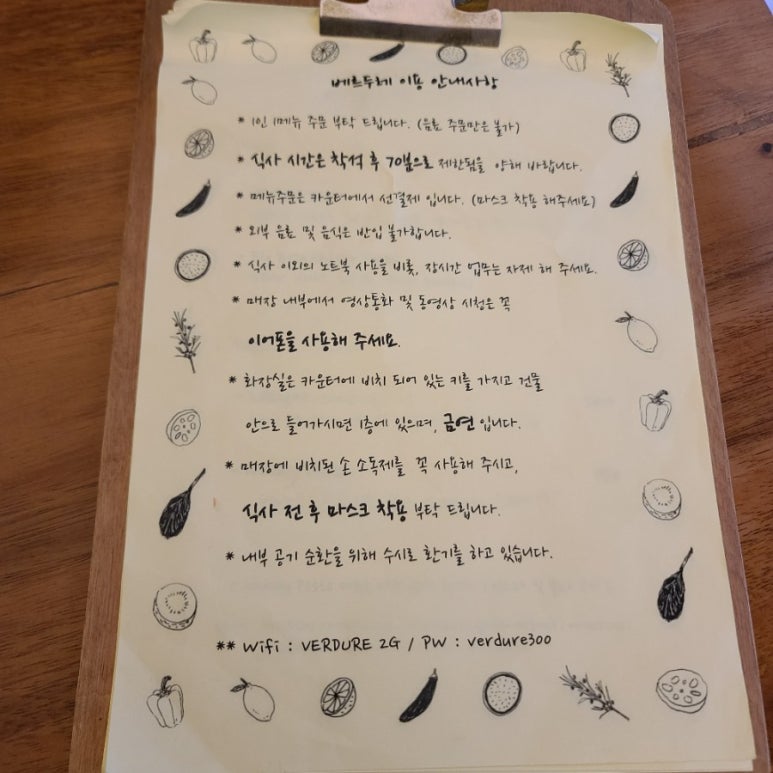 베르두레 이용 안내사항
* 1인 1메뉴 주문 부탁 드립니다. (음료 주문만은 불가)
* 식사 시간은 착석 후 70분으로 제한됨을 양해 바랍니다.
* 메뉴주문은 카운터에서 선결제 입니다. (마스크 착용 해주세요)
* 외부 음료 및 음식은 반입 불가합니다.
* 식사 이외의 노트북 사용을 비롯, 장시간 업무는 자제 해 주세요.
* 매장 내부에서 영상통화 및 동영상 시청은 꼭
이어폰을 사용해 주세요.
* 화장실은 카운터에 비치 되어 있는 키를 가지고 건물
안으로 들어가시면 1층에 있으며, 금연 입니다.
* 매장에 비치된 손 소독제를 꼭 사용해 주시고,
식사 전 후 마스크 착용 부탁 드립니다.
* 내부 공기 순환을 위해 수시로 환기를 하고 있습니다.
** Wifi : VERDURE 2G / PW : verdure300